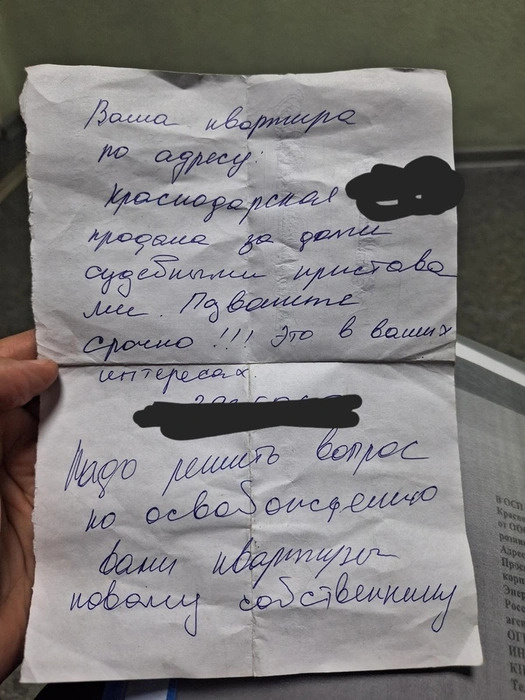 Ваша квартира
по адресу:
Краснодарская
продана за долги
судебными пристава
ми. Позвоните
срочно!!! Это в ваших
интересах.
Надо решить вопрос
по освобождению
Вами квартиры
новому собственнику
В ОСП
Красн
от ОО
розни
Адре
Прос
корп
Энер
Росс
аген
ОГ
ИН
КП